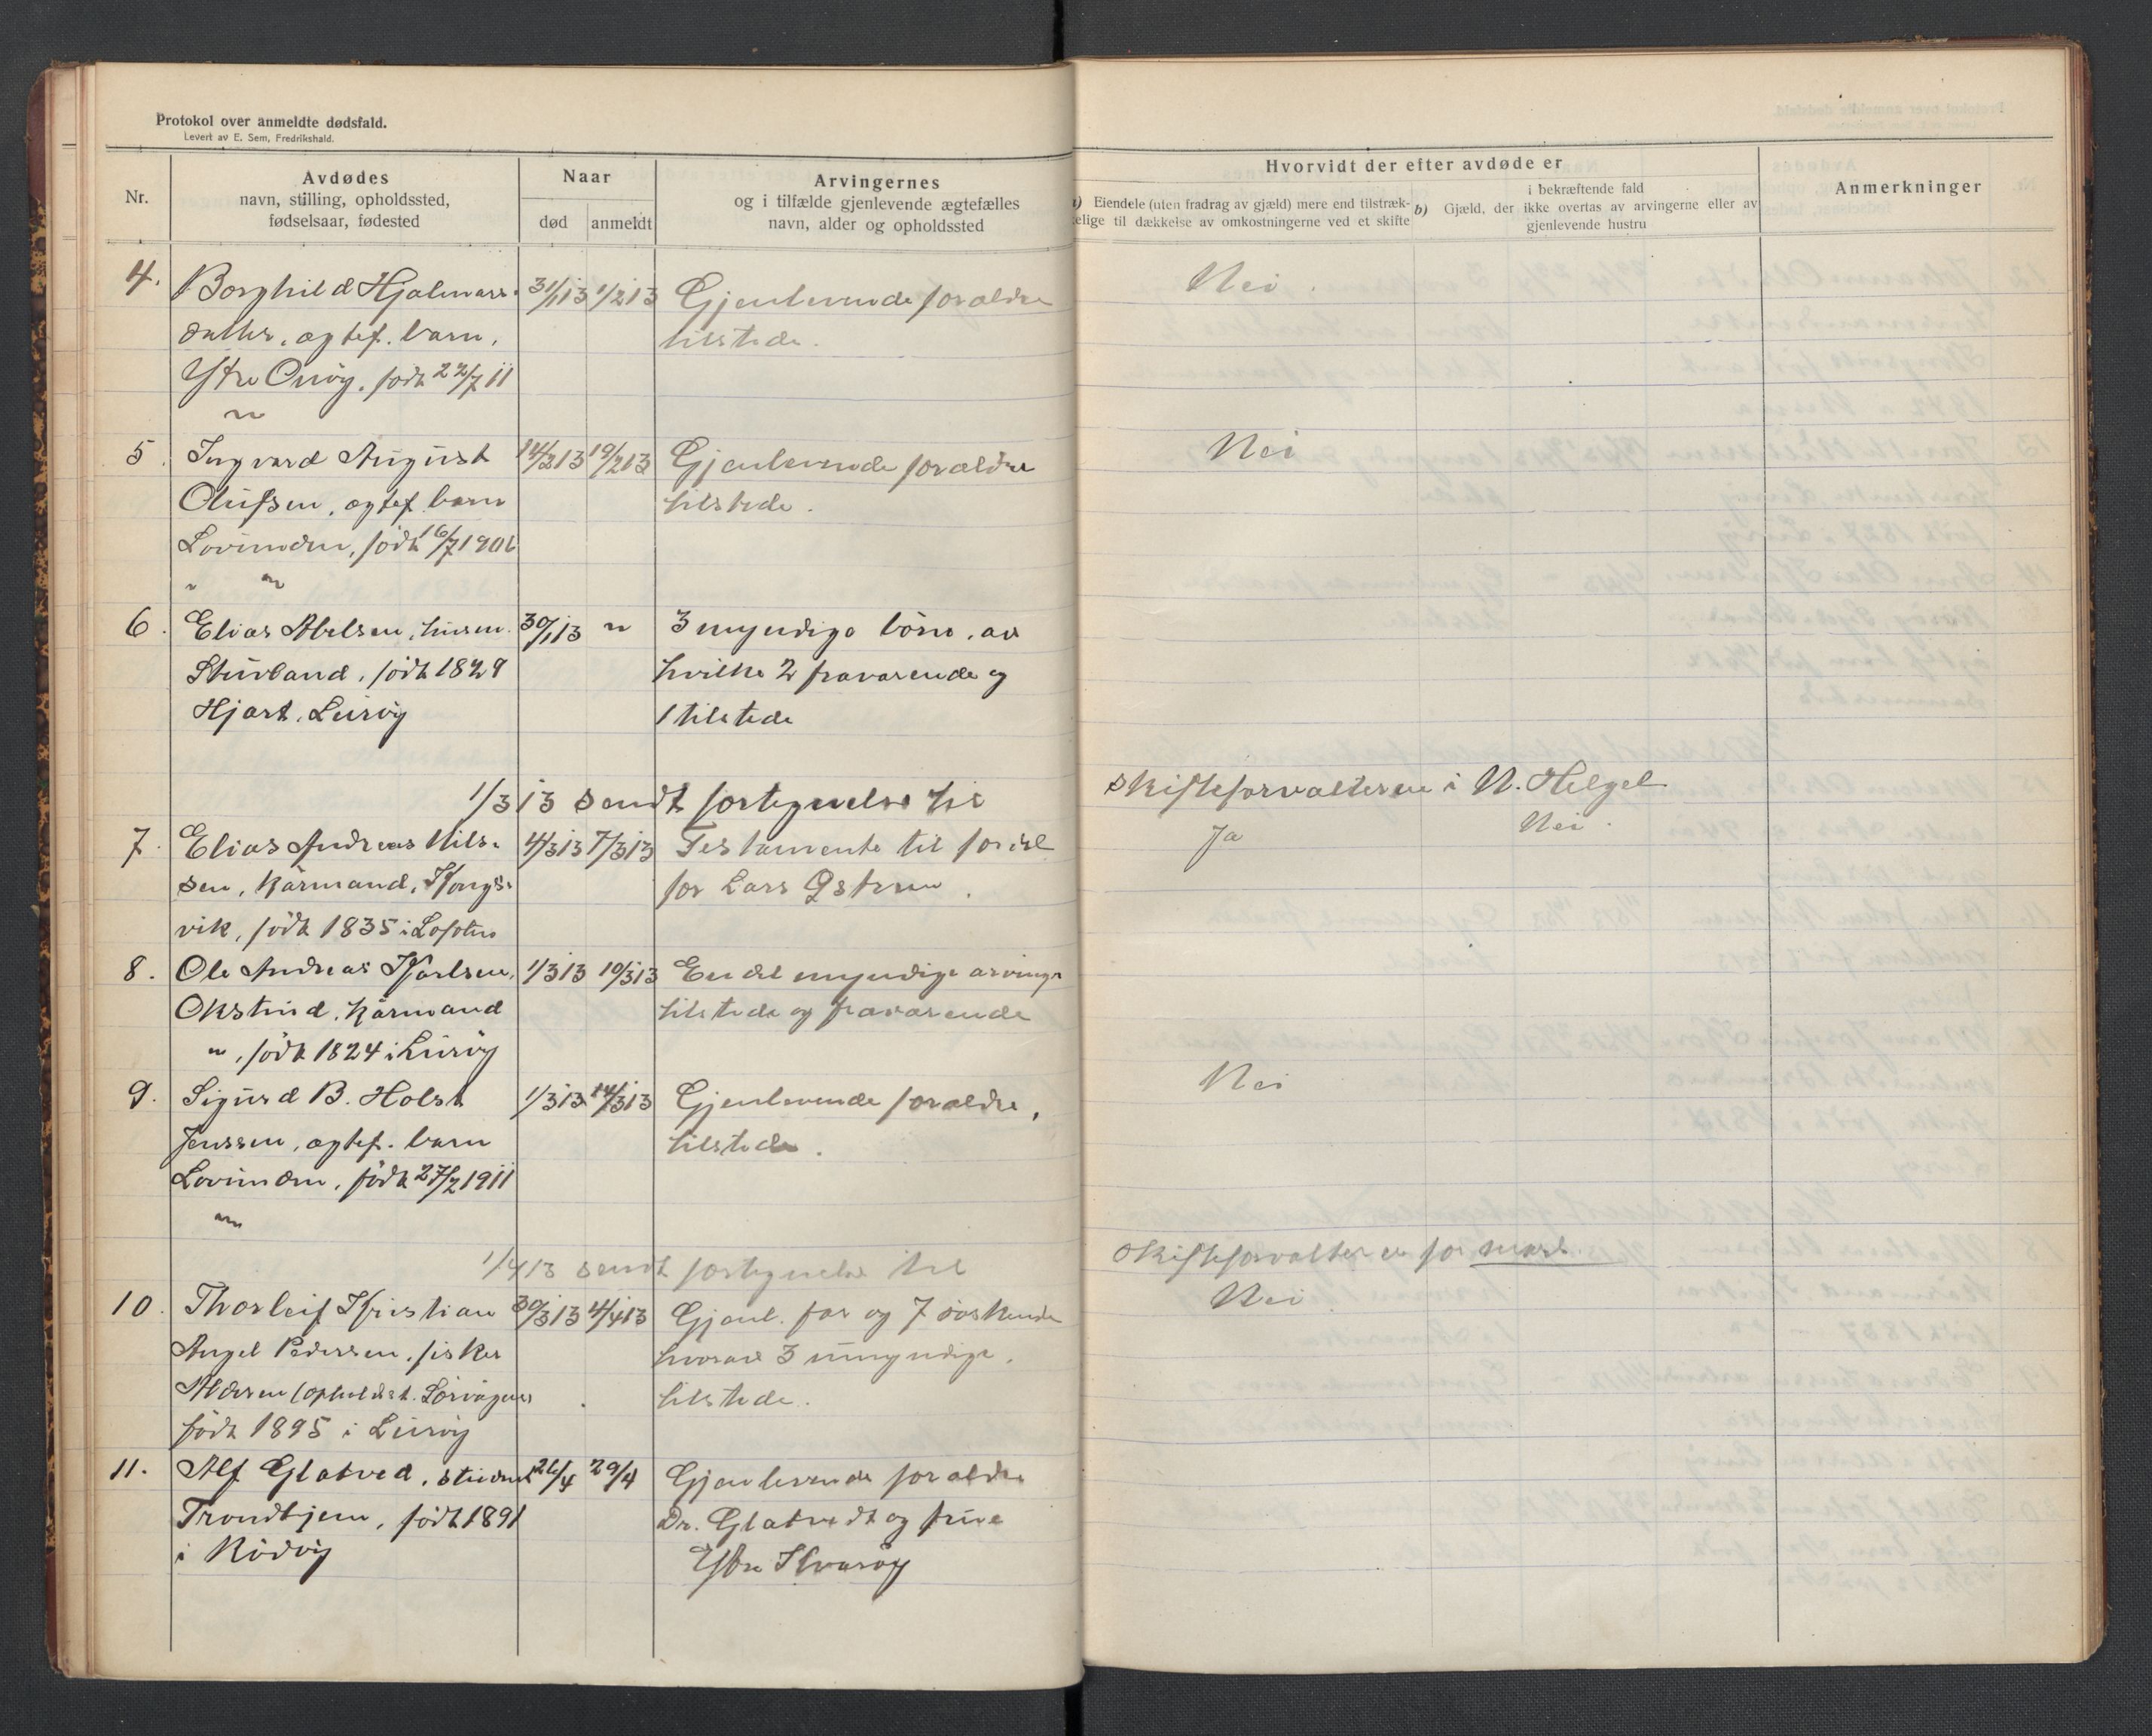 Protokol over anmeldte dødsfald.
Levert av E. Sem, Fredrikshald.
Nr.
Avdødes
navn, stilling, opholdssted,
fødselsaar, fødested
Naar
død
anmeldt
Arvingernes
og i tilfælde gjenlevende ægtefælles
navn, alder og opholdssted
Hvorvidt der efter avdøde er
a) Eiendele (uten fradrag av gjæld) mere end tilstræk-
kelige til dækkelse av omkostningerne ved et skifte
i bekræftende fald
b) Gjæld, der ikke overtas av arvingerne eller av
gjenlevende hustru
Anmerkninger
4. Borghild Hjalmars- 31/1 13 1/2 13 Gjenlevende forældre Nei.
datter, ægtef. barn, tilstede.
Ytre Onøy, født 22/7 11
"
5. Ingvard August 14/2 13 19/2 13 Gjenlevende forældre Nei
Olufsen, ægtef. barn tilstede.
Lovunden, født 16/7 1906
" "
6. Elias Abelsen, husm. 30/1 13 " 3 myndige børn, av
Stuvland, født 1829 hvilke 2 fraværende og
Hjart, Lurøy 1 tilstede
1/3 13 sendt fortegnelse til skifteforvalteren i N. Helgel.
7. Elias Andreas Nils- 4/3 13 7/3 13 Testamente til fordel Ja Nei.
sen, kårmand, Kongs- for Lars Østrem.
vik, født 1835 i Lofoten
8. Ole Andreas Karlsen, 1/3 13 10/3 13 En del myndige arvinge
Okstind, kårmand tilstede og fraværende
", født 1824 i Lurøy
9. Sigurd B. Holst 1/3 13 14/3 13 Gjenlevende forældre, Nei
Jenssen, ægtef. barn tilstede.
Lovunden, født 27/2 1911
"
1/4 13 sendt fortegnelse til skifteforvalteren for mars.
10. Thorleif Kristian 30/3 13 4/4 13 Gjenl. far og 7 søskende Nei
Angel Pedersen, fisker hvorav 3 umyndige,
Aldersen (opholdst. Sørvågen) tilstede.
født 1895 i Lurøy
11. Alf Glatved, student 26/4 29/4 Gjenlevende forældre
Trondhjem, født 1891 Dr. Glatvedt og frue
i Rødøy Ytre Kvarøy